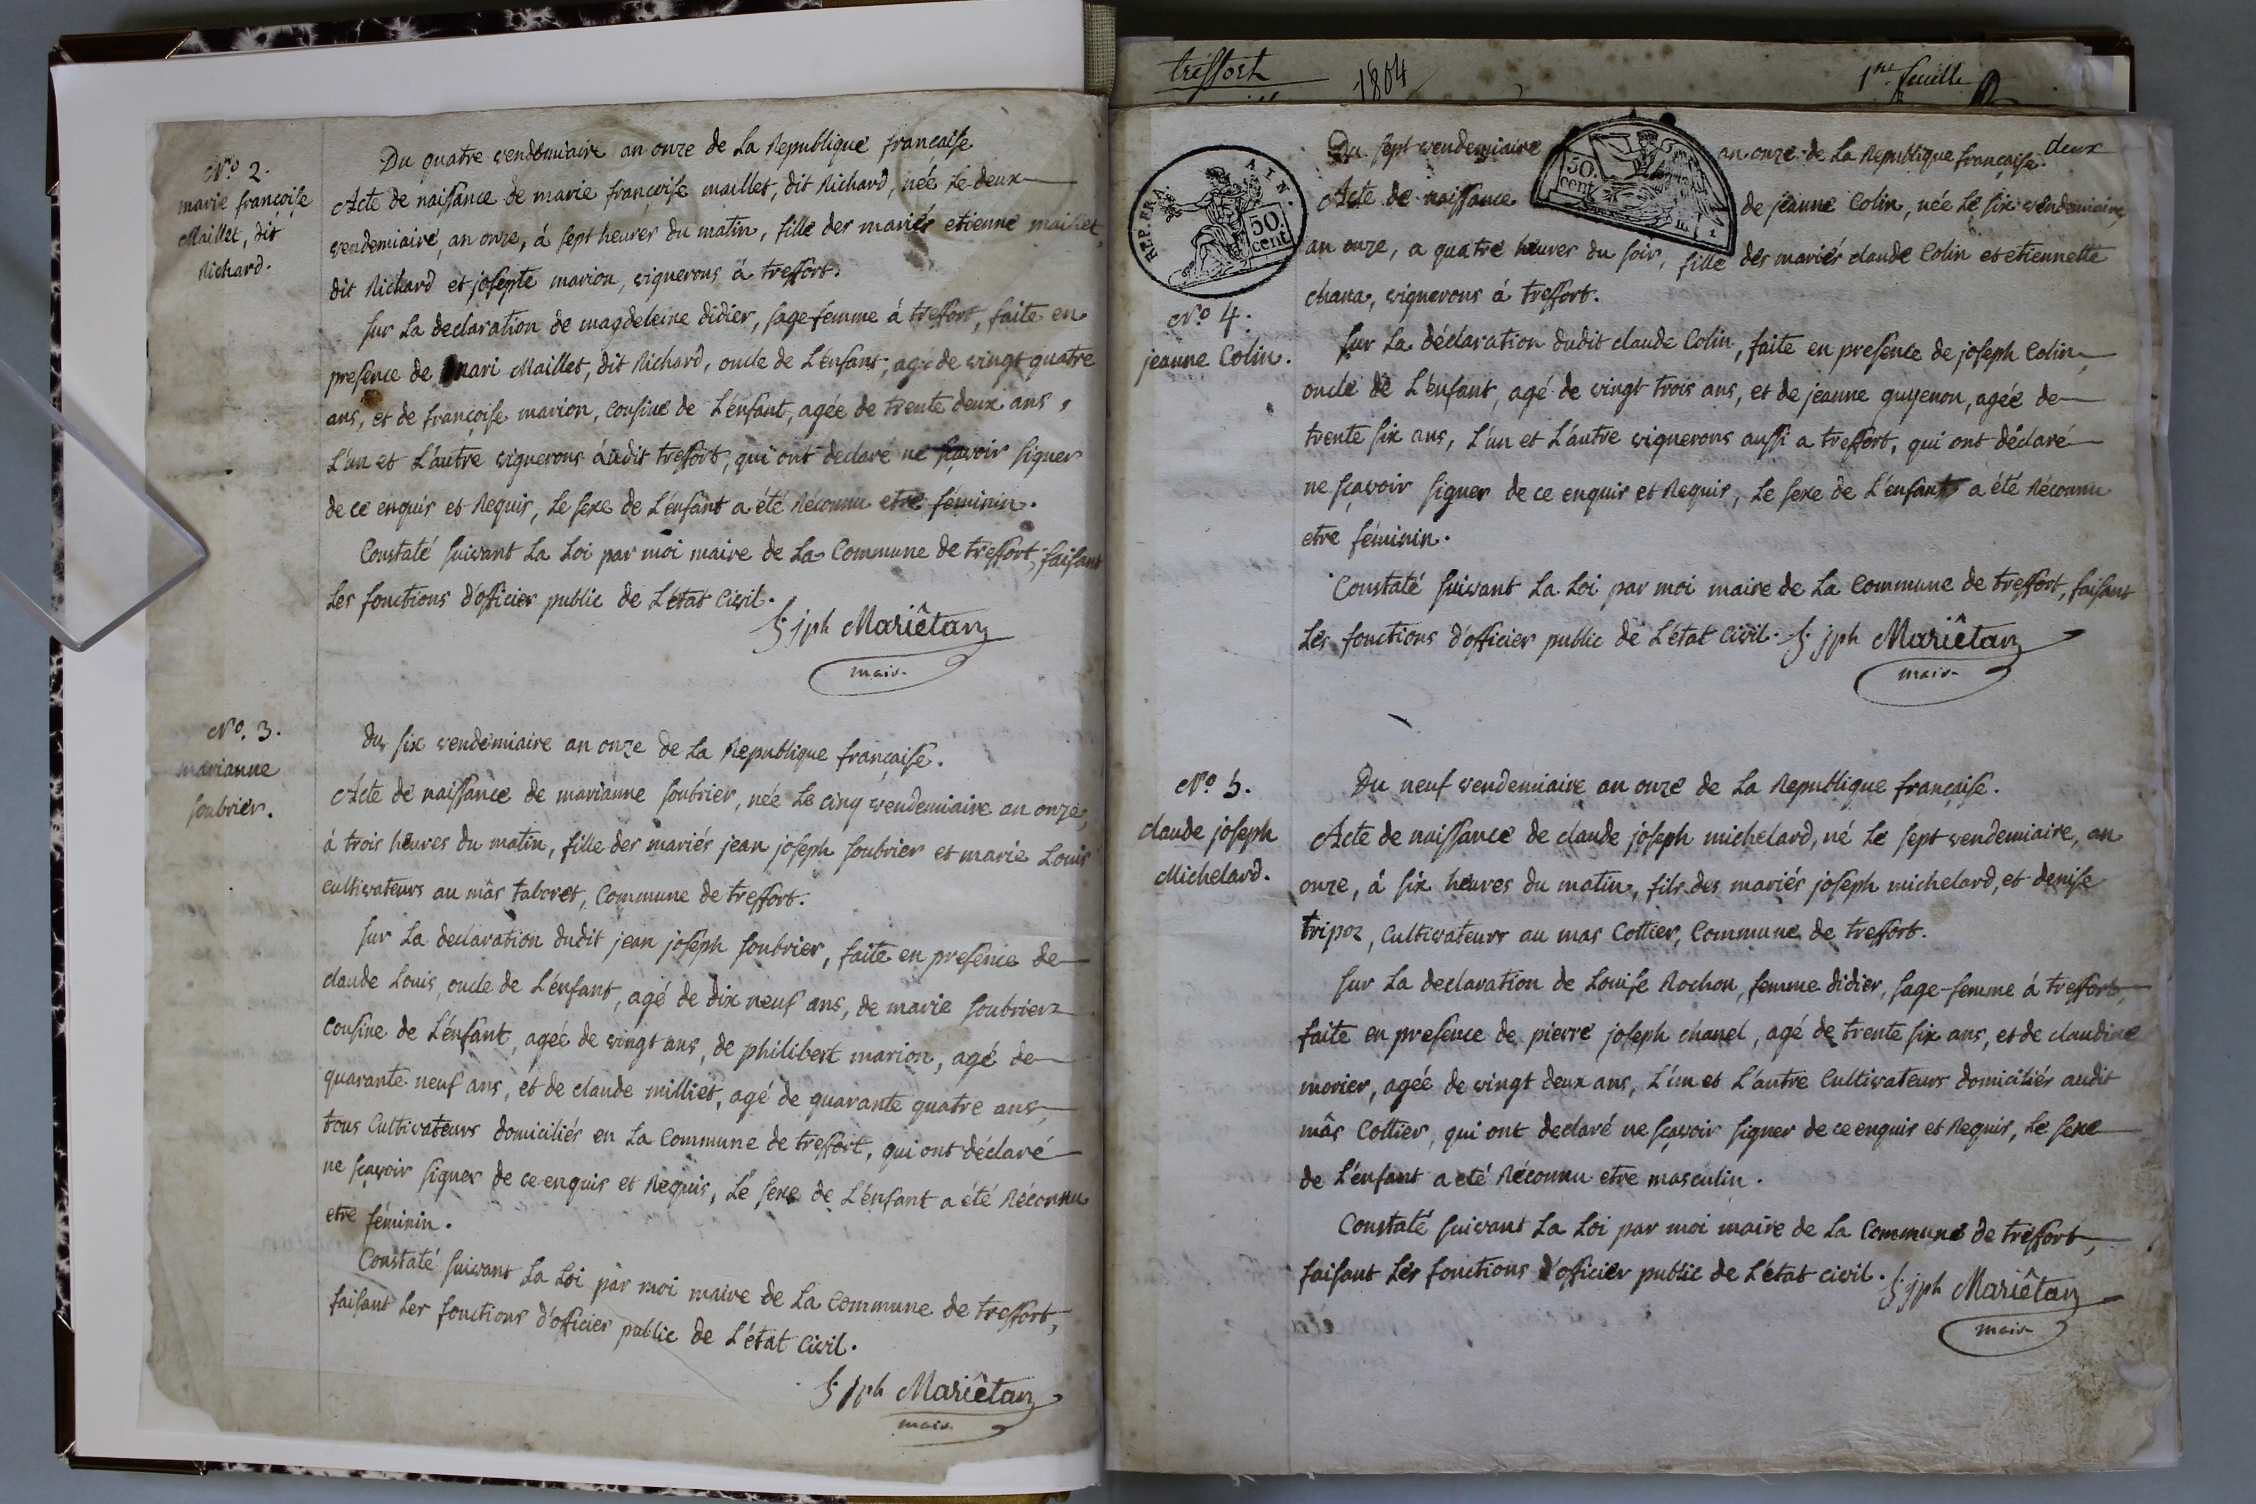 N.o 2.
marie françoise
Maillet, dit
Richard.
Du quatre vendemiaire an onze de La Republique françaife
Acte de naiffance de marie françoise maillet, dit Richard, née Le deux
vendemiaire, an onze, á sept heures du matin, fille des mariés etienne maillet,
dit Richard et josepte marion, vignerons á treffort.
sur La declaration de magdeleine didier, sage-femme á treffort, faite en
presence de mari Maillet, dit Richard, oncle de L'enfant, agé de vingt quatre
ans, et de françoise marion, cousine de L'enfant, agée de trente deux ans,
L'un et L'autre vignerons audit treffort, qui ont declaré ne sçavoir signer
de ce enquis et Requis, Le sexe de L'enfant a été Reconnu etre féminin.
Constaté suivant La Loi par moi maire de La Commune de treffort, faisant
Les fonctions d'officier public de L'état Civil.
jph Mariêtan
maire
N.o 3.
marianne
soubrier.
du six vendemiaire an onze de La Republique française.
Acte de naissance de marianne soubrier, née Le cinq vendemiaire an onze,
á trois heures du matin, fille des mariés jean joseph soubrier et marie Louis
cultivateurs au mâs taboret, Commune de treffort.
sur La declaration dudit jean joseph soubrier, faite en presence de
claude Louis, oncle de L'enfant, agé de dix neuf ans, de marie soubrier
cousine de L'enfant, ageé de vingt ans, de philibert marion, agé de
quarante neuf ans, et de claude milliet, agé de quarante quatre ans,
tous Cultivateurs domiciliés en La Commune de treffort, qui ont déclaré
ne sçavoir signer de ce enquis et Requis, Le sexe de L'enfant a été Réconnu
etre féminin.
Constaté suivant La Loi par moi maire de La Commune de treffort,
faisant Les fonctions d'officier public de L'état Civil.
jph Mariêtan
maire
treffort
1804
1re feuille
REP. FRA.
AIN.
50
cent
50.
cent
deux
Du sept vendemiaire an onze de La Republique française.
Acte de naissance de jeanne Colin, née Le six vendemiaire,
an onze, a quatre heures du soir, fille des mariés claude Colin et etiennette
chana, vignerons á treffort.
N.o 4.
jeanne Colin.
sur La déclaration dudit claude Colin, faite en presence de joseph Colin,
oncle de L'enfant, agé de vingt trois ans, et de jeanne guyenon, ageé de
trente six ans, L'un et L'autre vignerons aussi a treffort, qui ont déclaré
ne sçavoir signer de ce enquis et Requis, Le sexe de L'enfant a été Réconnu
etre féminin.
Constaté suivant La Loi par moi maire de La Commune de treffort, faisant
Les fonctions d'officier public de L'état Civil. jph Mariêtan
maire
N.o 5.
claude joseph
Michelard.
Du neuf vendemiaire an onze de La Republique française.
Acte de naissance de claude joseph michelard, né Le sept vendemiaire, an
onze, á six heures du matin, fils des mariés joseph michelard, et denise
tripoz, Cultivateurs au mas Cottier, Commune de treffort.
sur La declaration de Louise Rochon, femme didier, sage-femme á treffort,
faite en presence de pierre joseph chanel, agé de trente six ans, et de claudine
morier, ageé de vingt deux ans, L'un et L'autre Cultivateurs domiciliés audit
mâs Cottier, qui ont declaré ne sçavoir signer de ce enquis et Requis, Le sexe
de L'enfant a eté Réconnu etre masculin.
Constaté suivant La Loi par moi maire de La Commune de treffort,
faisant Les fonctions d'officier public de L'état civil. jph Mariêtan
maire